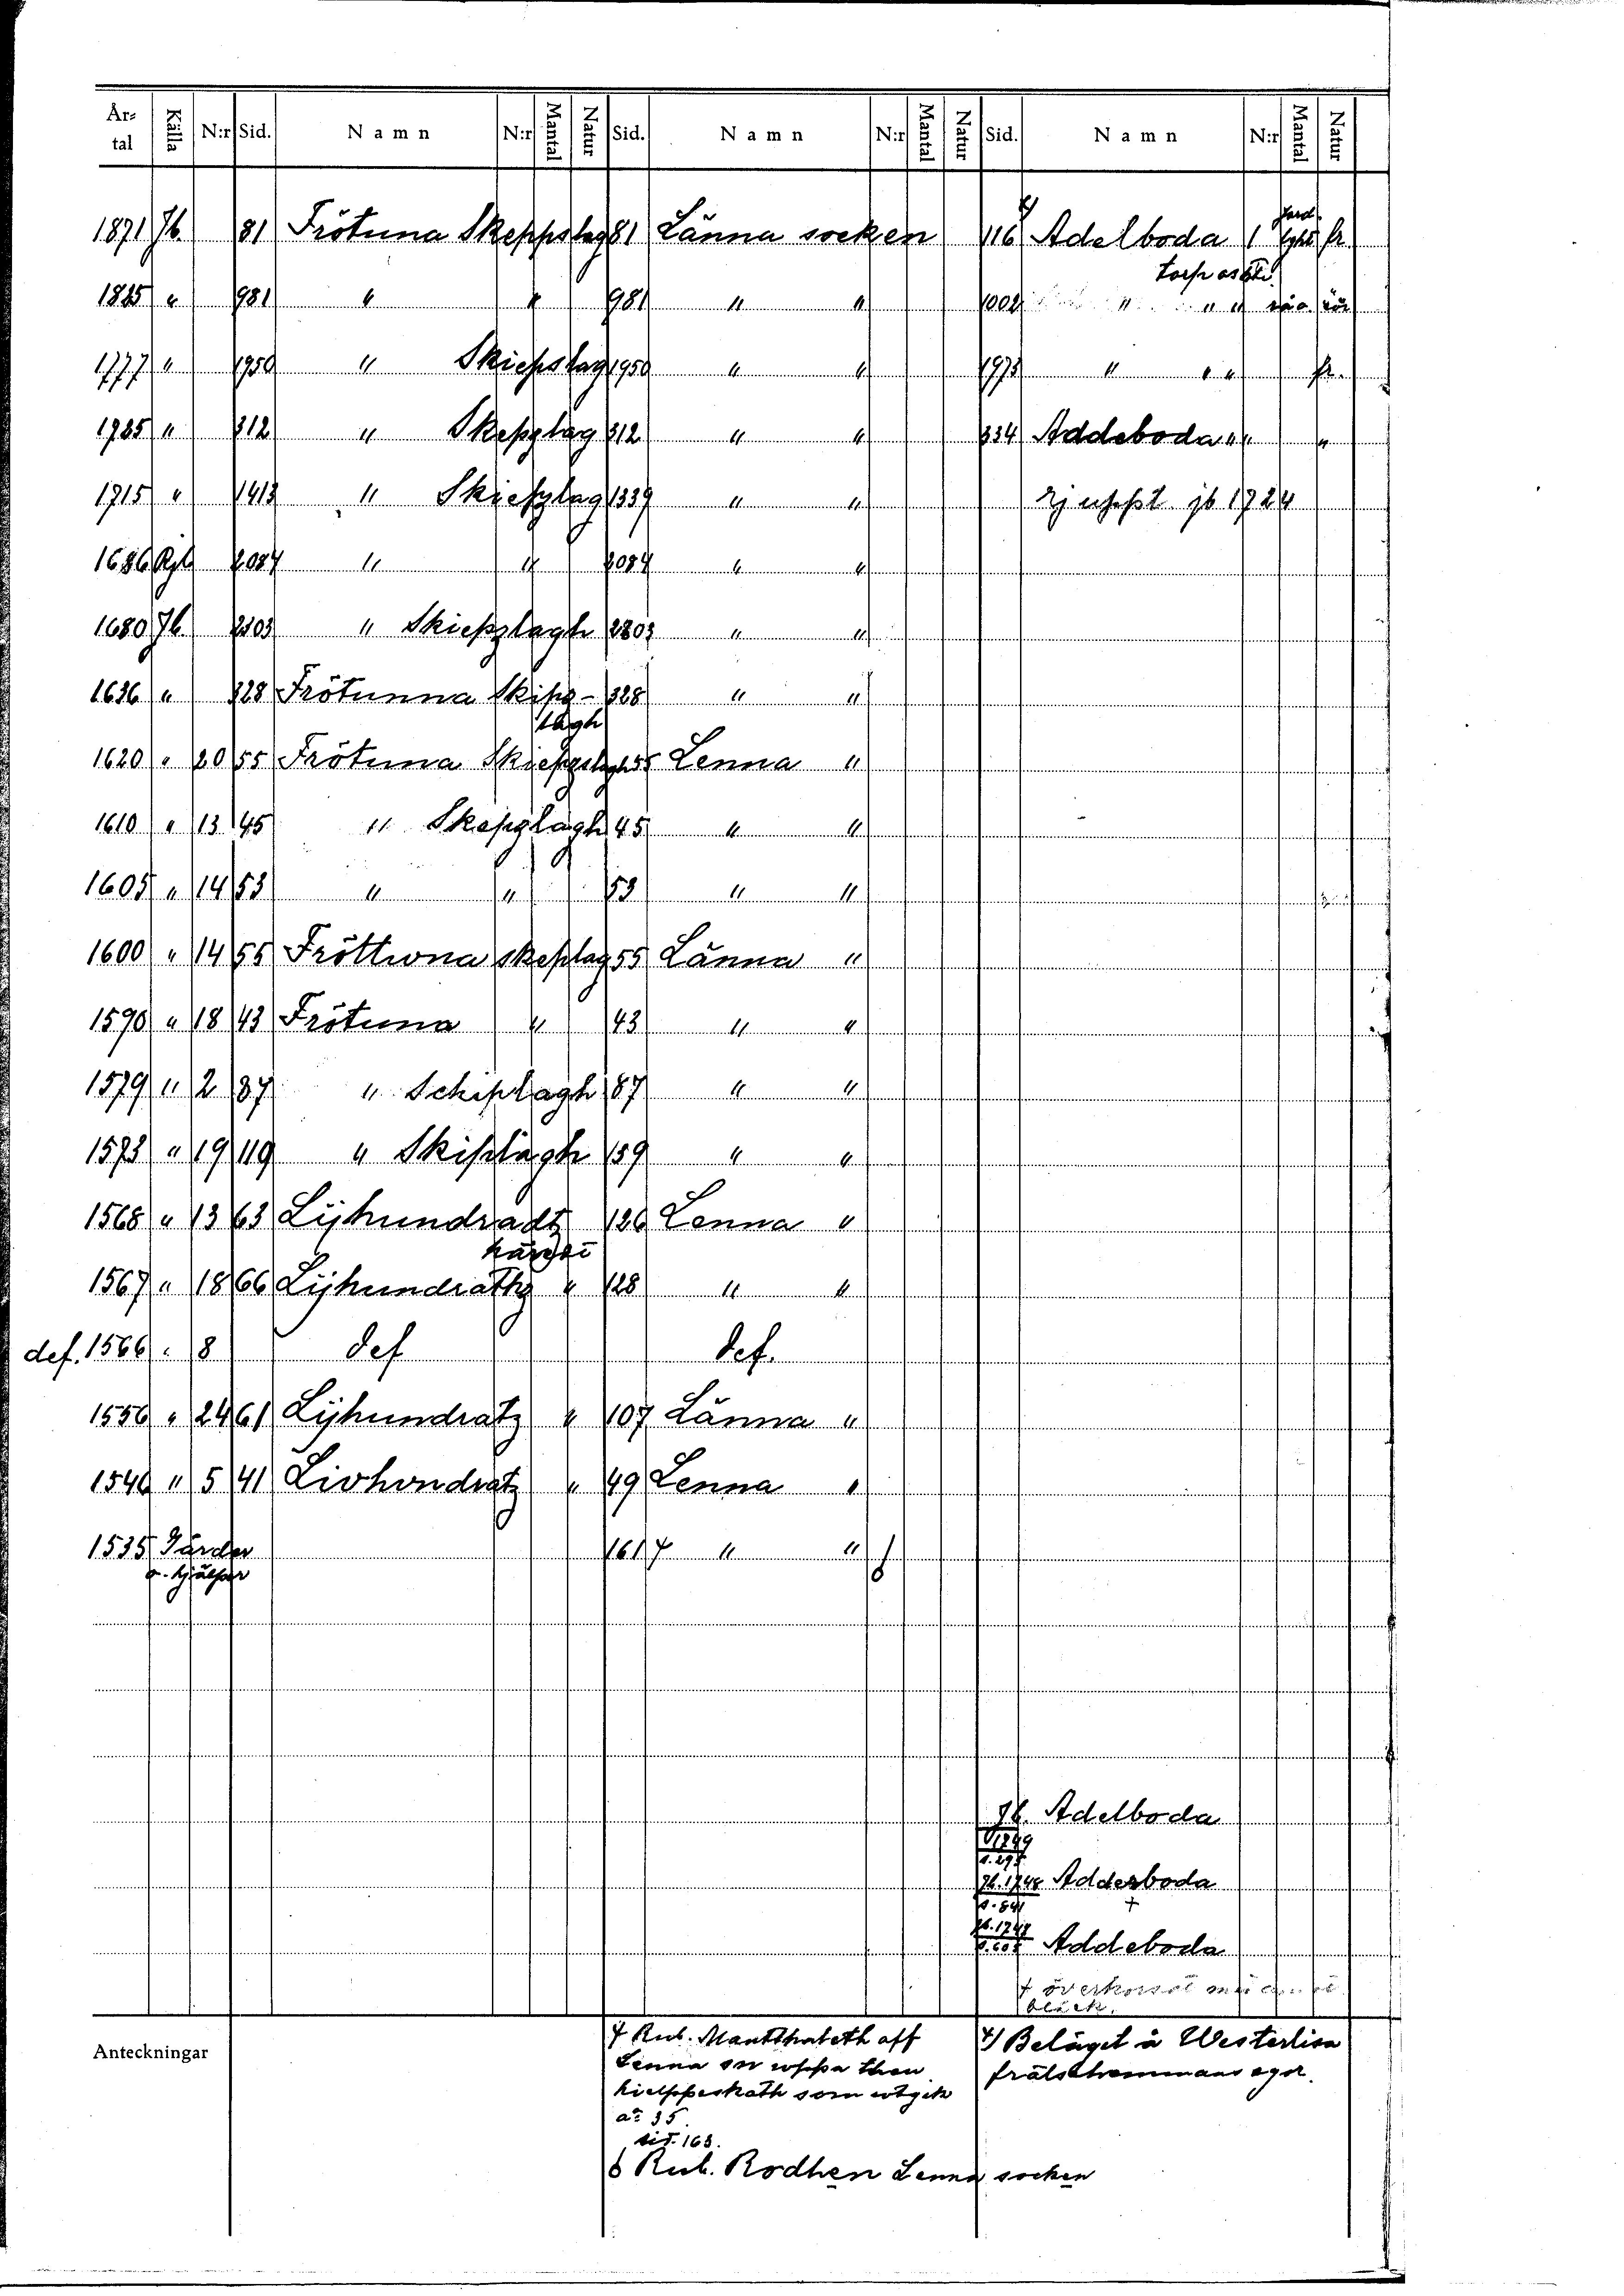 År- tal Källa N:r Sid. Namn N:r Mantal Natur Sid. Namn N:r Mantal Natur Sid. Namn N:r Mantal Natur
1871 Jb. 81 Frötuna Skeppslag 81 Länna socken 116 Adelboda 1 fr
1825 " 981 " " 981 " " 1002 " " "
1777 " 1950 " Skiepslag 1950 " " 1975 " " " fr.
1735 " 312 " Skepzlag 312 " " 334 Addeboda " " "
1715 " 1413 " Skiepzlag 1339 " " Ej uppft jb 1724
1686 Rjb 2084 " " 2084 " "
1680 Jb. 2803 " Skiepzlagh 2803 " "
1636 " 328 Frötunna Skipz- 328 " "
lagh
1620 " 20 55 Frötuna Skiepzlagh 55 Lenna "
1610 " 13 45 " Skepzlagh 45 " "
1605 " 14 53 " " 53 " "
1600 " 14 55 Fröttwna skeplag 55 Länna "
1590 " 18 43 Frötuna " 43 " "
1579 " 2 87 " Schiplagh 87 " "
1573 " 19 119 " Skiplagh 159 " "
1568 " 13 63 Lijhundradtz 126 Lenna "
häredt
1567 " 18 66 Lijhundrathz " 128 " "
def. 1566 " 8 def def.
1556 " 24 61 Lijhundratz " 107 Länna "
1540 " 5 41 Livhvndratz " 49 Lenna "
1535 Gärder 161 7 " "
o. hjälper
Jb. Adelboda
s. 295
Jb. 1748 Adderboda
s. 541 +
Jb. 1747
s. 605 Addeboda
+ överkorsat med annat
bläck.
Anteckningar
7 Rub. Mantthateth aff
Lenna sn wppa then
hielppeskath som wtgik
ao 35
sid. 163.
6 Rub. Rodhen Lenna socken
4) Beläget å Westerlisa
frälsehemmans egor.